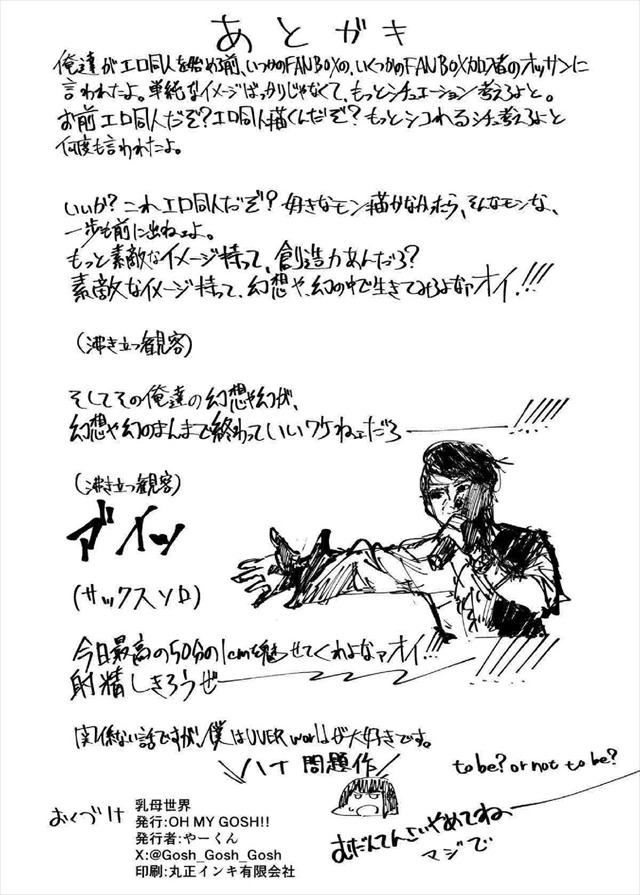 あとがき
俺達がエロ同人を始める前、いつかのFANBOXの、いくつかのFANBOX加入者のオッサンに
言われたよ。単純なイメージばっかりじゃなくて、もっとシチュエーション考えろよと。
お前エロ同人だぞ?エロ同人描くんだぞ?もっとシコれるシチュ考えろよと
何度も言われたよ。
いいか?これエロ同人だぞ?好きなモン描かなかったら、そんなモンな、
一歩も前に出ねェよ。
もっと素敵なイメージ持って、創造力あんだろ?
素敵なイメージ持って、幻想や、幻の中で生きてみろよなァオイ!!!
(沸き立つ観客)
そしてその俺達の幻想や幻が、
幻想や幻のまんまで終わっていいワケねェだろ――!!!!
(沸き立つ観客)
(サックスソロ)
今日最高の50分の1cmを魅せてくれよなァオイ!!!
射精しきろうぜ――
関係ない話ですが、僕はUVERworldが大好きです。
問題作
to be? or not to be?
むだんてんさいやめてねー
マジで
おくづけ
乳母世界
発行:OH MY GOSH!!
発行者:やーくん
X:@Gosh_Gosh_Gosh
印刷:丸正インキ有限会社